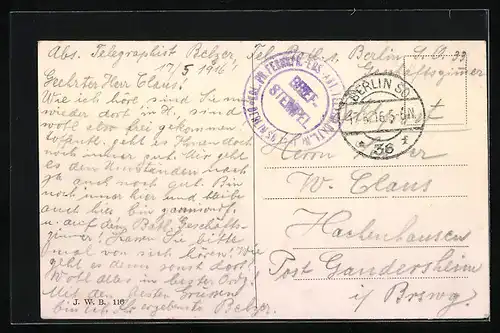 Abs. Telegraphist Betzer, Tel. Batl. 1. Berlin S.O. 33
Geschäftszimmer
17/5 1916
Geehrter Herr Claus!
Wie ich höre sind Sie nun
wieder dort in H., sind
wohl also frei gekommen,
geht es Ihnen doch
noch immer gut. Mir geht
es den Umständen nach
ja auch noch gut. Bin
noch immer hier und
auch hier bin garnisond.
u. auf dem Batl. Geschäfts-
zimmer. Lassen Sie bitte
mal von sich hören! Wie
geht es denn sonst dort?
Wohl alles in bester Ordg?
Mit den besten Grüssen
bin ich Ihr ergebenster Betzer.
J. W. B. 116
BRIEF-
STEMPEL
BERLIN SO
17.5.16.5-6N.
* 36
Feldpost
Herrn
W. Claus
Hachenhausen
Post Gandersheim
i/ Brswg.